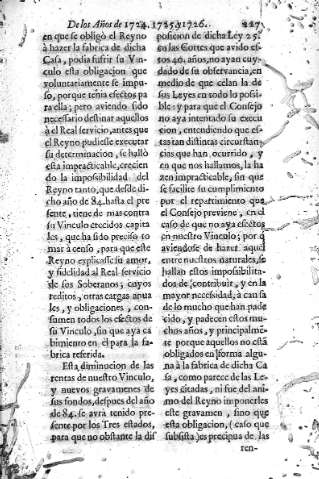 De los Años de 1724. 1725. y 1726. 227
en que se obligò el Reyno
à hazer la fabrica de dicha
Casa, podia sufrir su Vin-
culo esta obligacion que
voluntariamente se impu-
so, porque tenia efectos pa
ra ella; pero aviendo sido
necessario destinar aquellos
à el Real servicio, antes que
el Reyno pudiesse executar
su determinacion, se hallò
esta impracticable, crecien
do la impossibilidad del
Reyno tanto, que desde di-
cho año de 84. hasta el pre
sente, tiene de mas contra
su Vinculo crecidos capita
les, que ha sido preciso to
mar à censo, para que este
Reyno explicasse su amor,
y fidelidad al Real servicio
de sus Soberanos; cuyos
reditos, otras cargas anua
les, y obligaciones, con-
sumen todos los efectos de
su Vinculo, sin que aya ca
bimiento en èl para la fa-
brica referida.
Esta diminucion de las
rentas de nuestro Vinculo,
y nuevos gravamenes de
sus fondos, despues del año
de 84. se avrà tenido pre-
sente por los Tres estados,
para que no obstante la dis
posicion de dicha Ley 25.
en las Cortes que avido es-
tos 40. años, no ayan cuy-
dado de su observancia, en
medio de que célan la de
sus Leyes en todo lo possi-
ble: y para que el Consejo
no aya intentado su execu
cion, entendiendo que es-
tas tan distintas circunstan-
cias que han ocurrido, y
en que nos hallamos, la ha
zen impracticable, sin que
se facilite su cumplimiento
por el repartimiento que
el Consejo previene, en el
caso de que no aya efectos
en nuestro Vinculo; por q̃
aviendose de hazer aquel
entre nuestros naturales, se
hallan estos impossibilita-
dos de contribuir, y en la
mayor necessidad, à causa
de lo mucho que han pade
cido, y padecen estos mu-
chos años, y principalmẽ-
te porque aquellos no està
obligados en forma algu-
na à la fabrica de dicha Ca
sa, como parece de las Le-
yes citadas, ni fue del ani-
mo del Reyno imponerles
este gravamen, sino que
esta obligacion, (caso que
subsista) es precipua de las
ren-